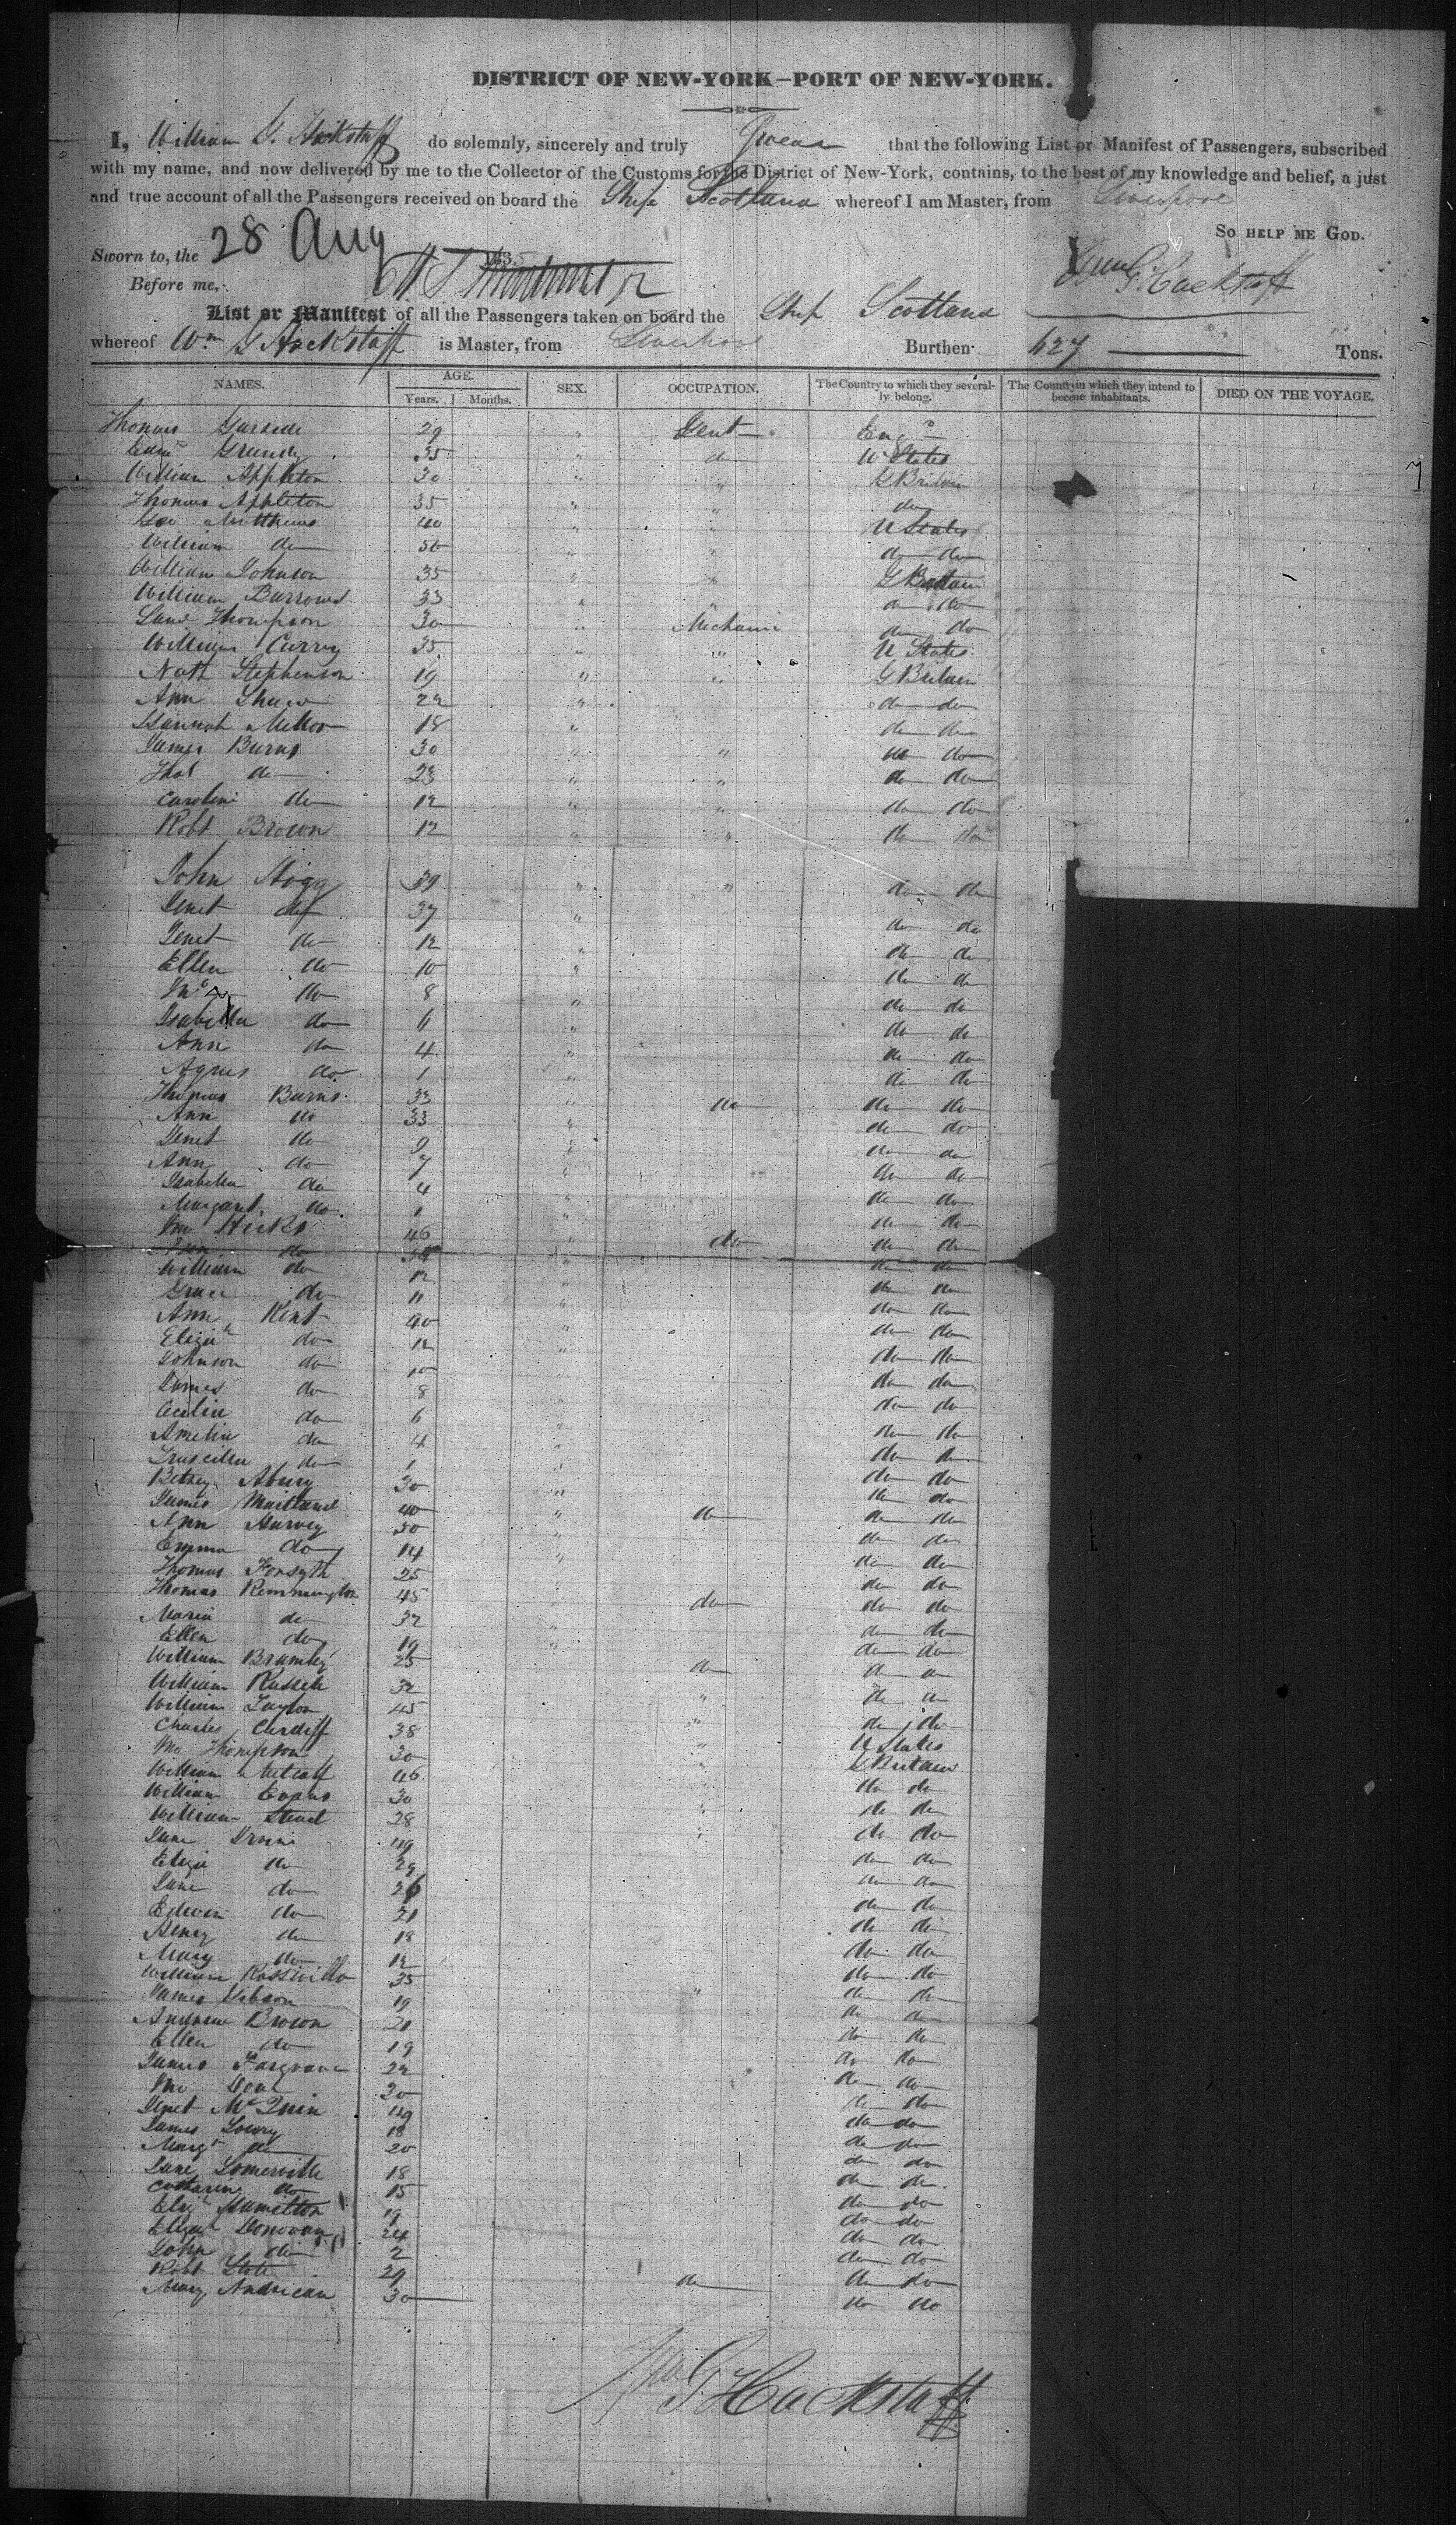 DISTRICT OF NEW-YORK—PORT OF NEW-YORK.
I, William G. Hackstaff do solemnly, sincerely and truly Swear that the following List or Manifest of Passengers, subscribed
with my name, and now delivered by me to the Collector of the Customs for the District of New-York, contains, to the best of my knowledge and belief, a just
and true account of all the Passengers received on board the Ship Scotland whereof I am Master, from Liverpool
So help me God.
Sworn to, the 28 Aug 1835
Before me, Wm G. Hackstaff
List or Manifest of all the Passengers taken on board the Ship Scotland
whereof Wm G Hackstaff is Master, from Liverpool Burthen 627 Tons.
NAMES. AGE. SEX. OCCUPATION. The Country to which they severally belong. The Country in which they intend to become inhabitants. DIED ON THE VOYAGE.
Years. Months.
Thomas Garside 29 " Gent Eng
Grundy 35 " do U States
William Appleton 30 " " G Britain
Thomas Appleton 35 " " do
Geo Matthews 40 " " U States
William do 50 " " do do
William Johnson 35 " " G Britain
William Burrows 33 " do do
Thompson 30 " Mechanic do do
William Currey 35 " " U States
Nath Stephenson 19 " " G Britain
Ann Shaw 22 " do do
Hannah Mellor 18 " do do
James Burns 30 " " do do
Thos do 23 " " do do
Caroline do 12 " " do do
Robt Brown 12 " " do do
John Hogg 39 " " do do
Jenet do 37 " do do
Jenet do 12 " do do
Ellen do 10 " do do
do 8 " do do
Isabella do 6 " do do
Ann do 4 " do do
Agnes do 1 " do do
Thomas Burns 33 " do do do
Ann do 33 " do do
Jenet do 9 " do do
Ann do 7 " do do
Isabella do 4 " do do
Margaret do 1 " do do
Hicks 46 " do do do
do do do
William do 12 " do do
Grace do 11 " do do
Ann Kent 40 " do do
Elizth do 12 " do do
Johnson do 10 do do
James do 8 do do
Cecilia do 6 " do do
Amelia do 4 " do do
do 1 " do do
Betsey Abury 30 " do do
James Maitland 40 " do do do
Ann Harvey 30 " do do
Emma do 14 " do do
Thomas Forsyth 25 do do
Thomas Remmington 45 do do do
Maria do 32 " do do
Ellen do 19 " do do
William Brumby 25 do do do
William Russell 32 " do do
William Taylor 45 " do do
Charles Cardiff 38 " U States
Thompson 30 " G Britain
William Metcalf 46 " do do
William Evans 30 do do
William Steel 28 " do do
Jane Irvine 49 " do do
Eliza do 29 do do
Jane do 26 do do
Edwin do 21 do do
Henry do 18 do do
Mary do 12 do do
William 35 do do
James Gibson 19 " do do
Andrew Brown 21 do do
Ellen do 19 do do
James Hargrave 22 do do
30 do do
Jenet McQuin 49 do do
James Lowry 18 do do
Margt do 20 do do
Jane Somerville 18 do do
Catharine do 15 do do
Elizth Hamelton 19 do do
Elizath Donovan 24 do do
John do 2 do do
Robt 29 do do do
Mary Andrican 30 do do
Wm G Hackstaff